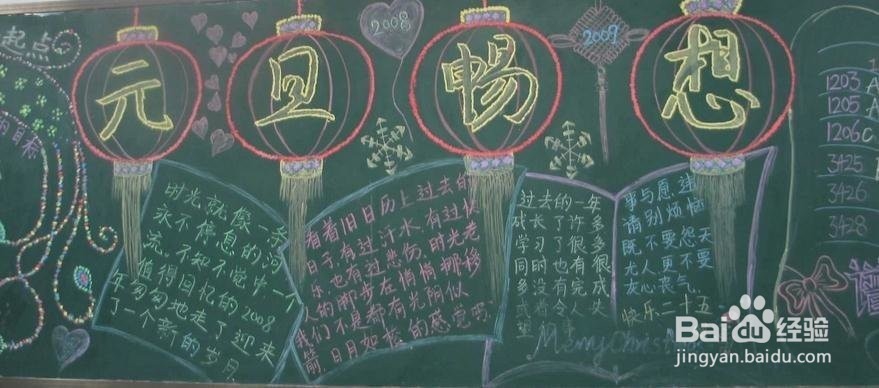 起点
的目标
元旦畅想
2008
2009
1203 A
1205 A
1206 C
3425
3426
3428
时光就像一条
永不停息的河
流。不知不觉中一个
值得回忆的2008
年匆匆地走了迎来
了一个新的岁月
看着旧日历上过去的
日子有过汗水，有过快
乐也有过悲伤。时光老
人的脚步在悄悄挪移
我们不是都有光阴似
箭，日月如梭的感觉吗
过去的一年
成长了许多
学习了很多
同时也有很
多的没有完
成着令人失
望的事
事与愿违
请别烦恼
既不要怨天
尤人更不要
灰心丧气。
快乐二十五
Merry Christmas
Baidu经验
jingyan.baidu.com